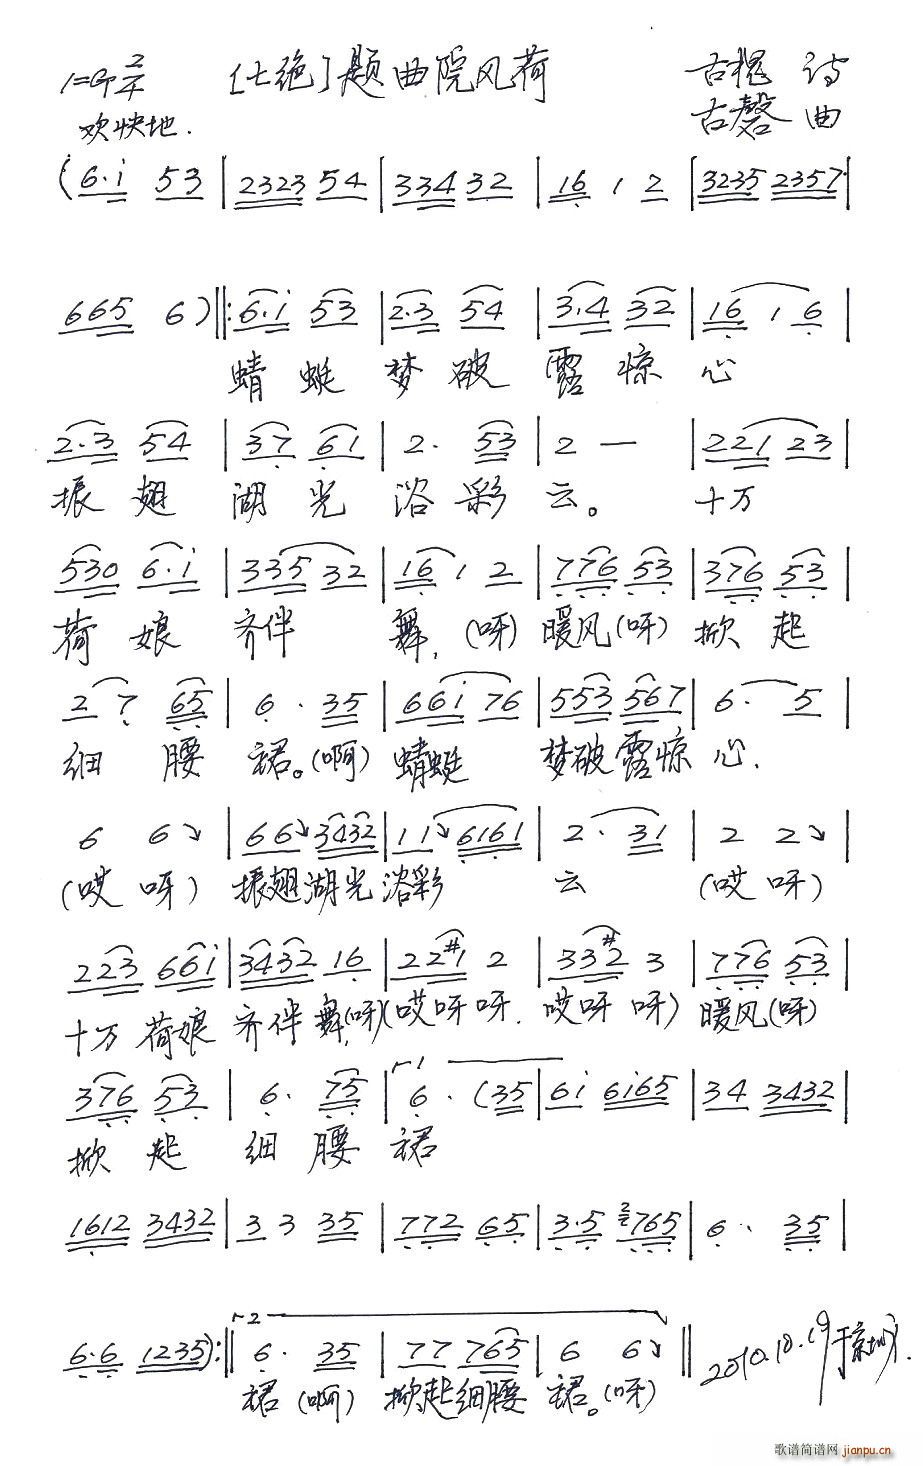 1=G 2/4 [七绝]题曲院风荷 古槐 诗
欢快地. 古磬 曲
(6·i 53 | 2323 54 | 334 32 | 16 1 2 | 3235 2357 |
665 6) ‖: 6·i 53 | 2·3 54 | 3·4 32 | 16 1 6 |
蜻蜓 梦破 露惊 心
2·3 54 | 37 61 | 2· 53 | 2 — | 221 23 |
振翅 湖光 浴彩 云。 十万
530 6·i | 335 32 | 16 1 2 | 776 53 | 376 53 |
荷娘 齐伴 舞,(呀) 暖风(呀) 掀起
2 7 65 | 6· 35 | 66i 76 | 553 567 | 6· 5 |
细腰 裙。(啊) 蜻蜓 梦破露惊 心.
6 6↘ | 66↘ 3432 | 11↘ 6161 | 2· 31 | 2 2↘ |
(哎呀) 振翅湖光 浴彩 云 (哎呀)
223 66i | 3432 16 | 22#1 2 | 33#2 3 | 776 53 |
十万荷娘 齐伴舞,(呀)(哎呀呀. 哎呀呀) 暖风(呀)
376 53 | 6· 75 | 1 6· (35 | 6i 6i65 | 34 3432 |
掀起 细腰 裙
1612 3432 | 3 3 35 | 772 65 | 3·5 2765 | 6· 35 |
6·6 1235) :‖ 2 6· 35 | 77 765 | 6 6↘ ‖ 2010.10.19于京城.
裙(啊) 掀起细腰 裙。(呀)
歌谱简谱网 jianpu.cn